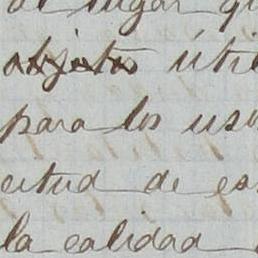 al lugar qu
objetos útil
para los uso
citud de es
la calidad